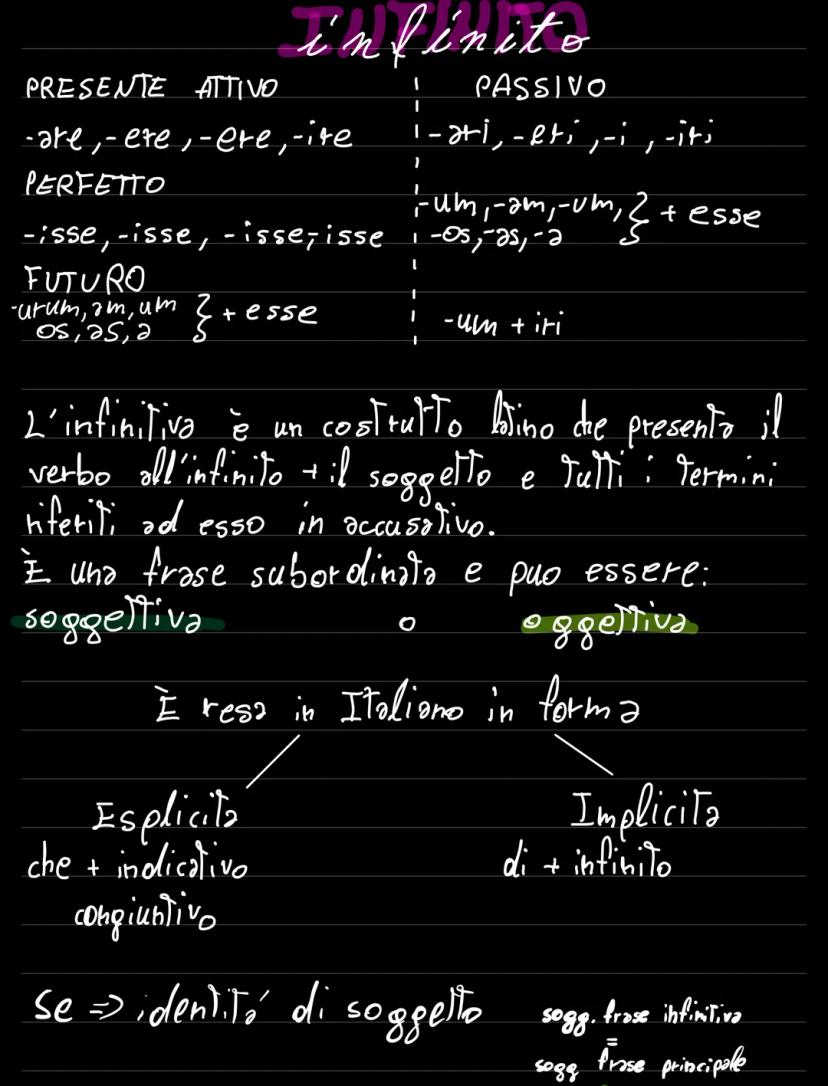 INFINITO
infinito
PRESENTE ATTIVO
PASSIVO
-are, -ere, -ere, -ire
-ari, -eri, -i, -iri
PERFETTO
-isse, -isse, -isse, -isse
-um, -am, -um, } + esse
-os, -as, -a
FUTURO
-urum, am, um } + esse
os, as, a
-um + iri
L'infinitiva è un costrutto latino che presenta il
verbo all'infinito + il soggetto e tutti i termini
riferiti ad esso in accusativo.
È una frase subordinata e puo essere:
soggettiva o oggettiva
È resa in Italiano in forma
Esplicita
Implicita
che + indicativo
di + infinito
congiuntivo
Se => identitá di soggetto
sogg. frase infinitiva
=
sogg frase principale